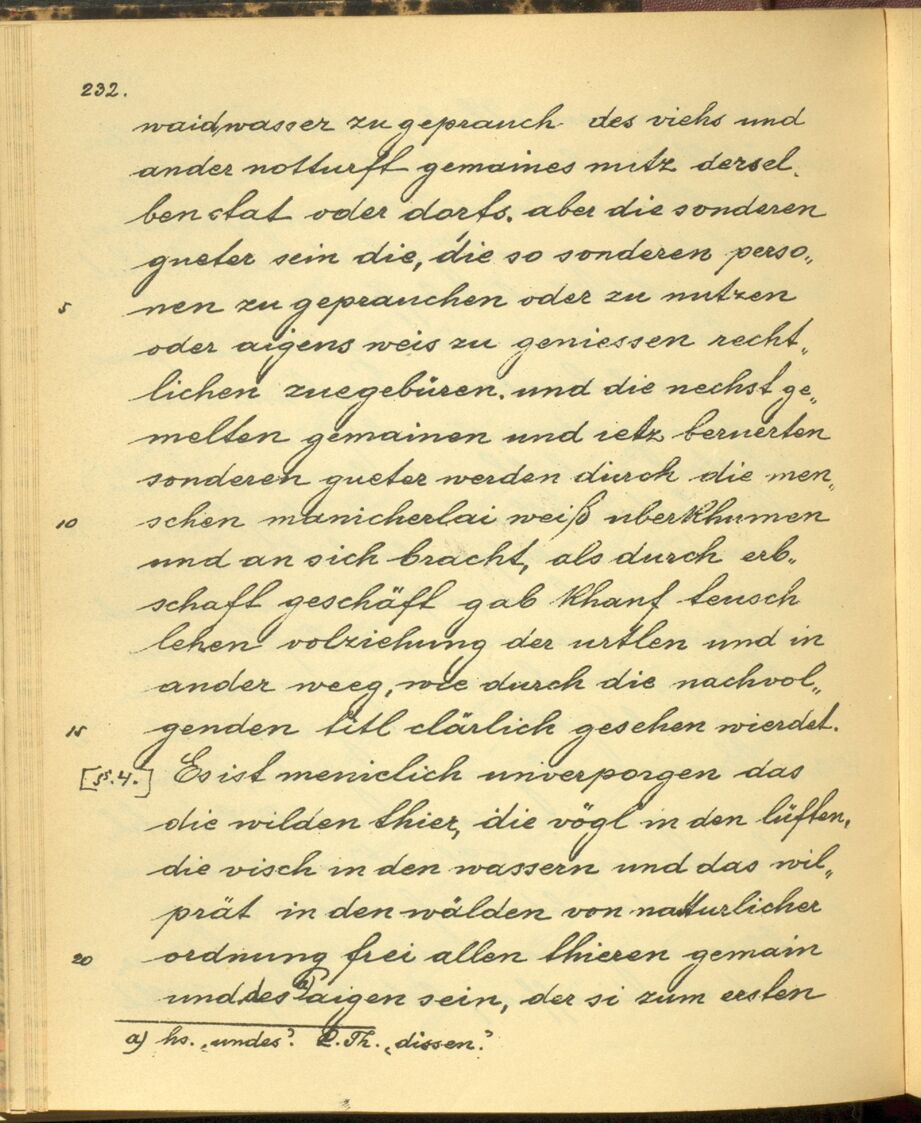 232.
waid, wasser zu geprauch des viehs und
ander notturft gemaines nutz dersel.
ben stat oder dorfs. aber die sonderen
gueter sein die, die so sonderen perso„
5 nen zu geprauchen oder zu nutzen
oder aigens weis zu geniessen recht„
lichen zuegebüren. und die nechst ge„
melten gemainen und ietz beruerten
sonderen gueter werden durch die men„
10 schen manicherlai weiß uberkhumen
und an sich bracht, als durch erb„
schaft geschäft gab khauf teusch
lehen volziehung der urtlen und in
ander weeg, wie durch die nachvol„
15 genden titl clärlich gesehen wierdet.
[§.4.] Es ist meniclich unverporgen das
die wilden thier, die vögl in den lüften,
die visch in den wassern und das wil„
prät in den wälden von natturlicher
20 ordnung frei allen thieren gemain
und des a) aigen sein, der si zum ersten
a) hs. „undes". L. Th. „dissen."